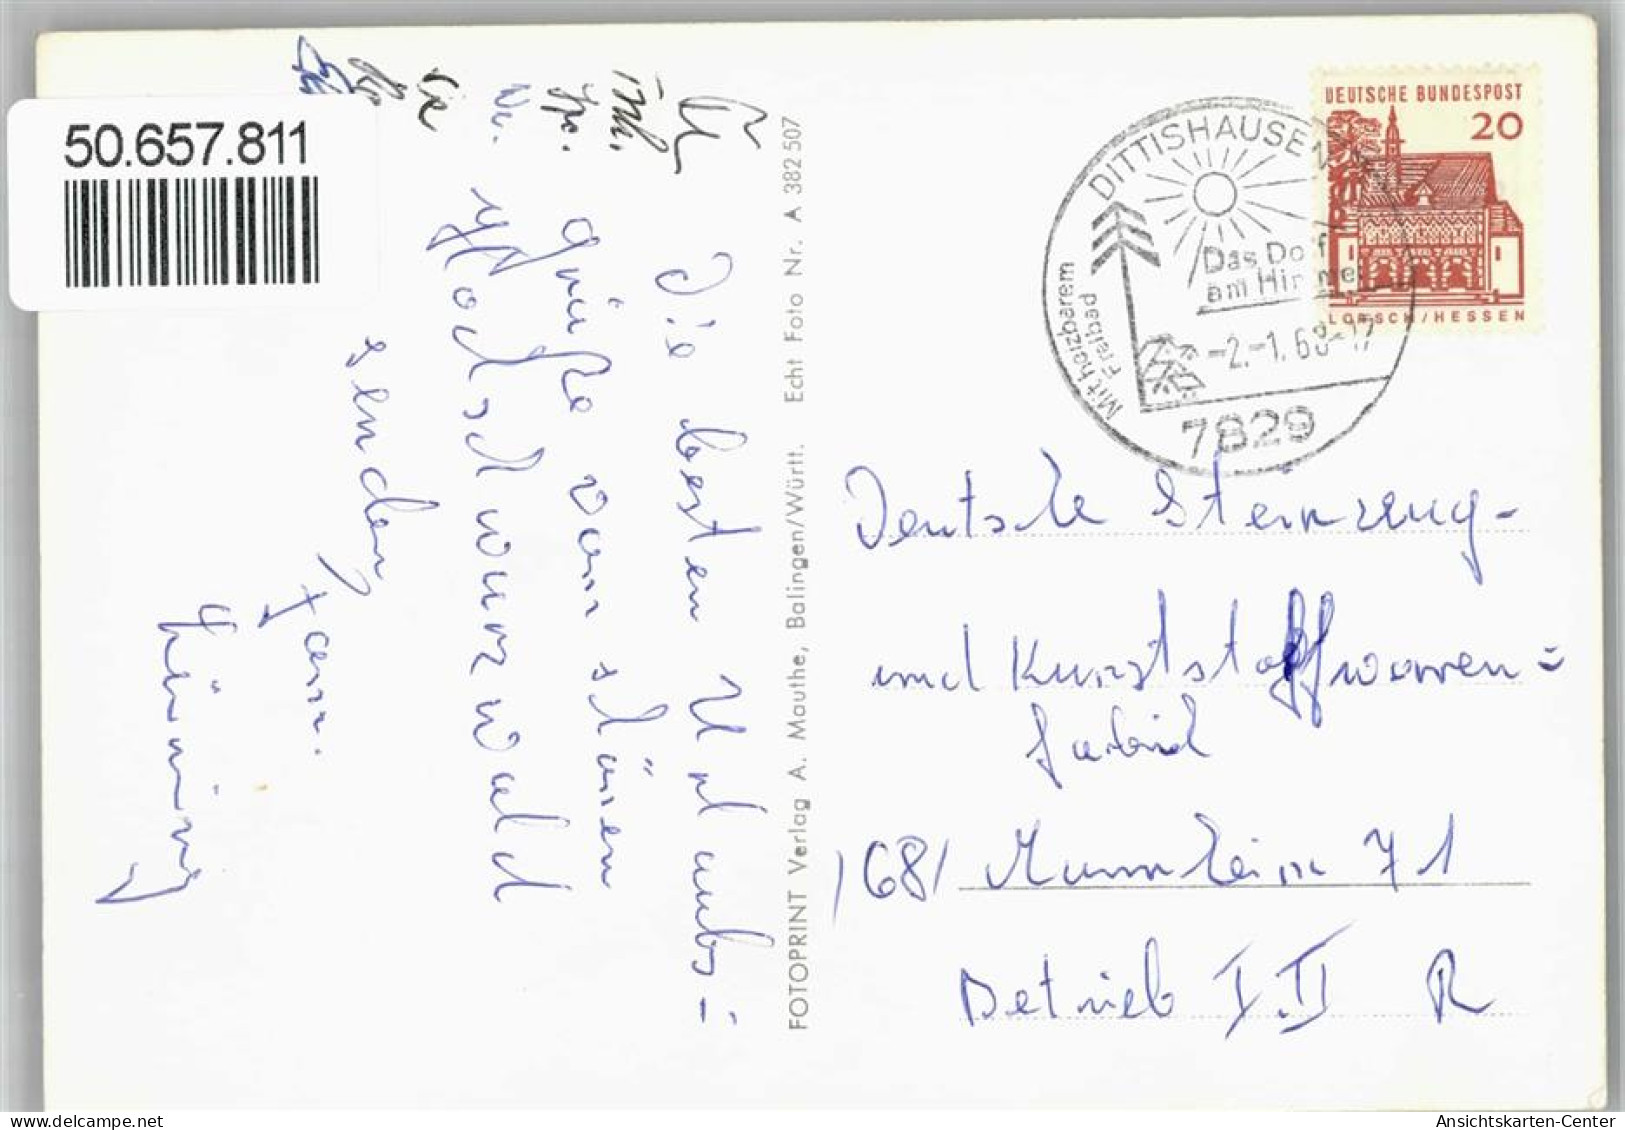 50.657.811
DEUTSCHE BUNDESPOST
20
LORSCH/HESSEN
DITTISHAUSEN
Das Dorf
am Himmel
Mit heizbarem
Freibad
-2.-1.68-17
7829
Die besten Urlaubs=
grüße vom schönen
Hochschwarzwald
senden
Fam.
FOTOPRINT Verlag A. Mauthe, Balingen/Württ. Echt Foto Nr. A 382 507
Deutsche Steinzeug-
und Kunststoffwaren=
fabrik
1681 Mannheim 71
Betrieb I.II R
delcampe.net
Ansichtskarten-Center